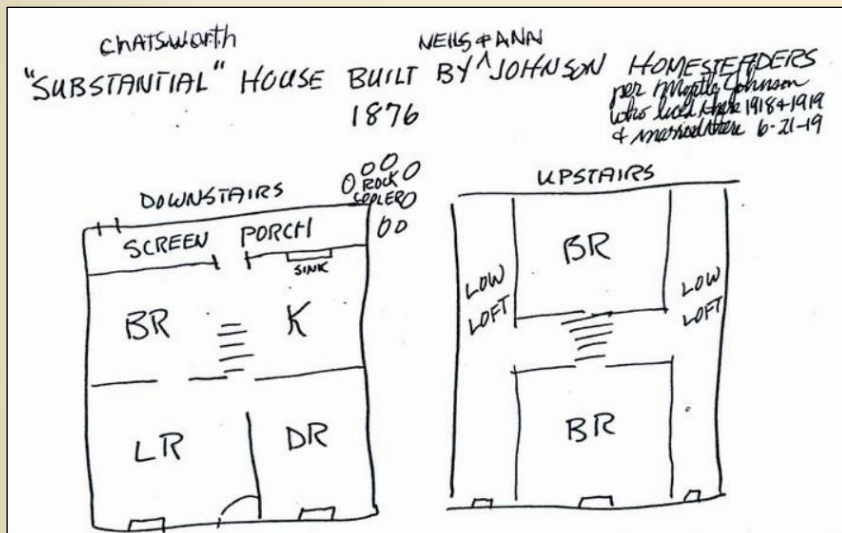 CHATSWORTH
NEILS & ANN
"SUBSTANTIAL" HOUSE BUILT BY ^ JOHNSON HOMESTEADERS
1876
per Myrtle Johnson
who lived there 1918+1919
& married there 6-21-19
DOWNSTAIRS
ROCK
COOLER
SCREEN PORCH
SINK
BR
K
LR
DR
UPSTAIRS
BR
LOW
LOFT
LOW
LOFT
BR